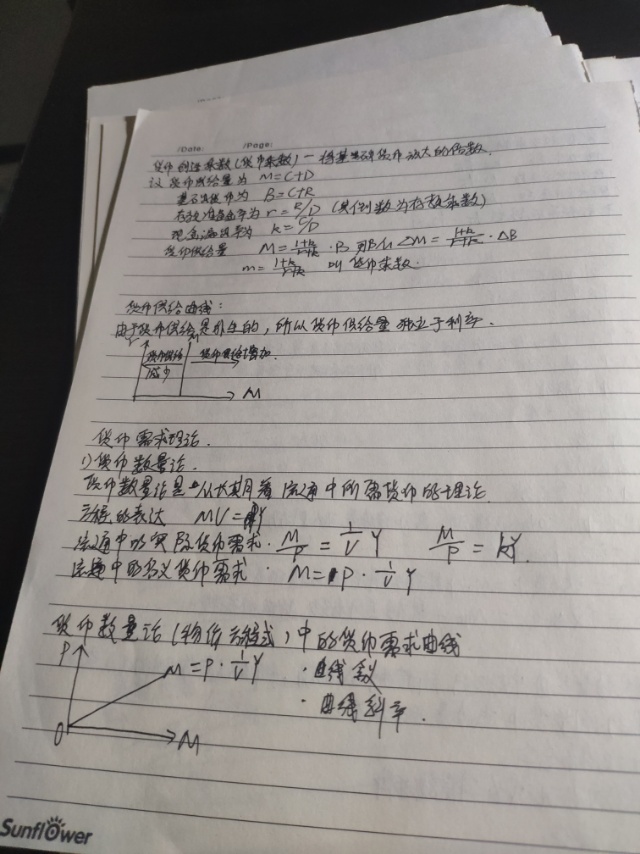 /Date: /Page:
货币创造乘数(货币乘数)一将基础货币放大的倍数.
设货币供给量为 M=C+D
基础货币为 B=C+R
存款准备金率为 r=R/D (其倒数为存款乘数)
现金漏损率为 k=C/D
货币供给量 M=1+k/r+k·B 所以 ΔM=1+k/r+k·ΔB
m=1+k/r+k 叫货币乘数.
货币供给曲线:
由于货币供给是外生的,所以货币供给量独立于利率.
r
货币供给 货币供给增加.
减少
M
货币需求理论.
1)货币数量论.
货币数量论是从长期看流通中所需货币的理论
方程的表达 MV=PY
流通中的实际货币需求·M/P=1/V Y M/P=kY.
流通中的名义货币需求· M=P·1/V Y
货币数量论(物价方程式)中的货币需求曲线
P M=P·1/V Y ·曲线含义
·曲线斜率.
O M
Sunflower